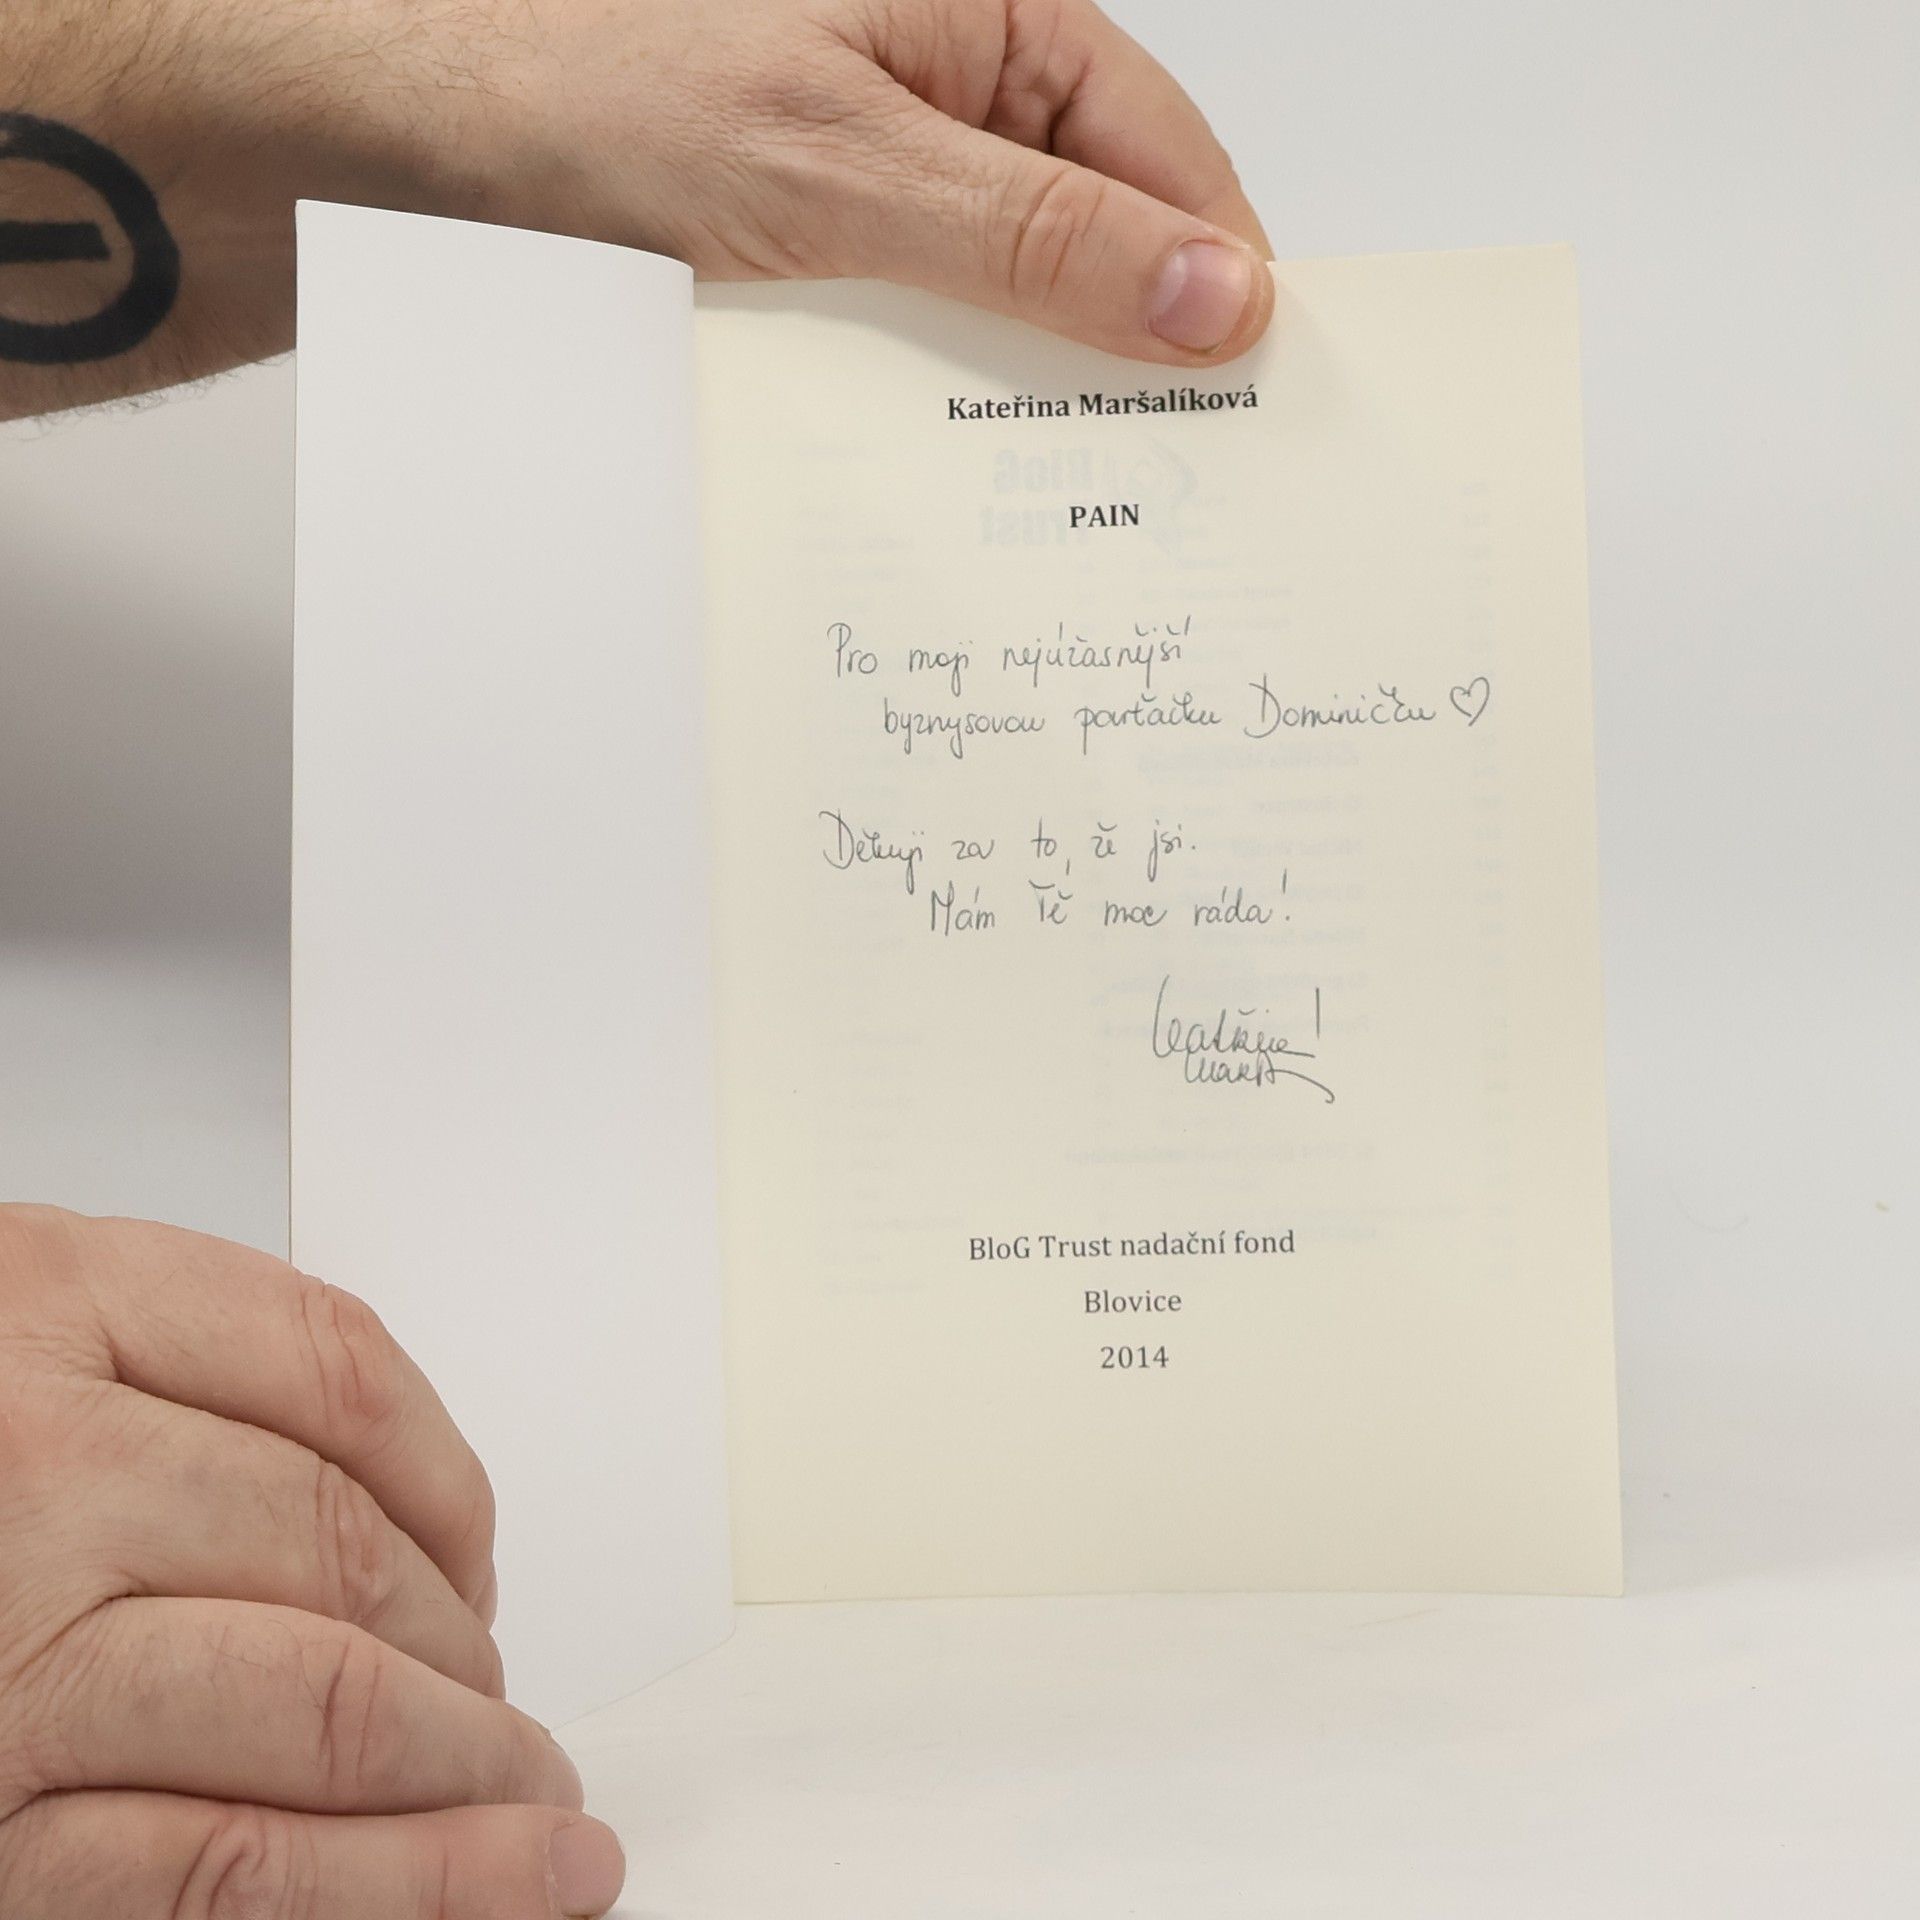 Kateřina Maršalíková
PAIN
Pro moji nejúžasnější
byznysovou parťačku Dominičku
Děkuji za to, že jsi.
Mám Tě moc ráda!
BloG Trust nadační fond
Blovice
2014